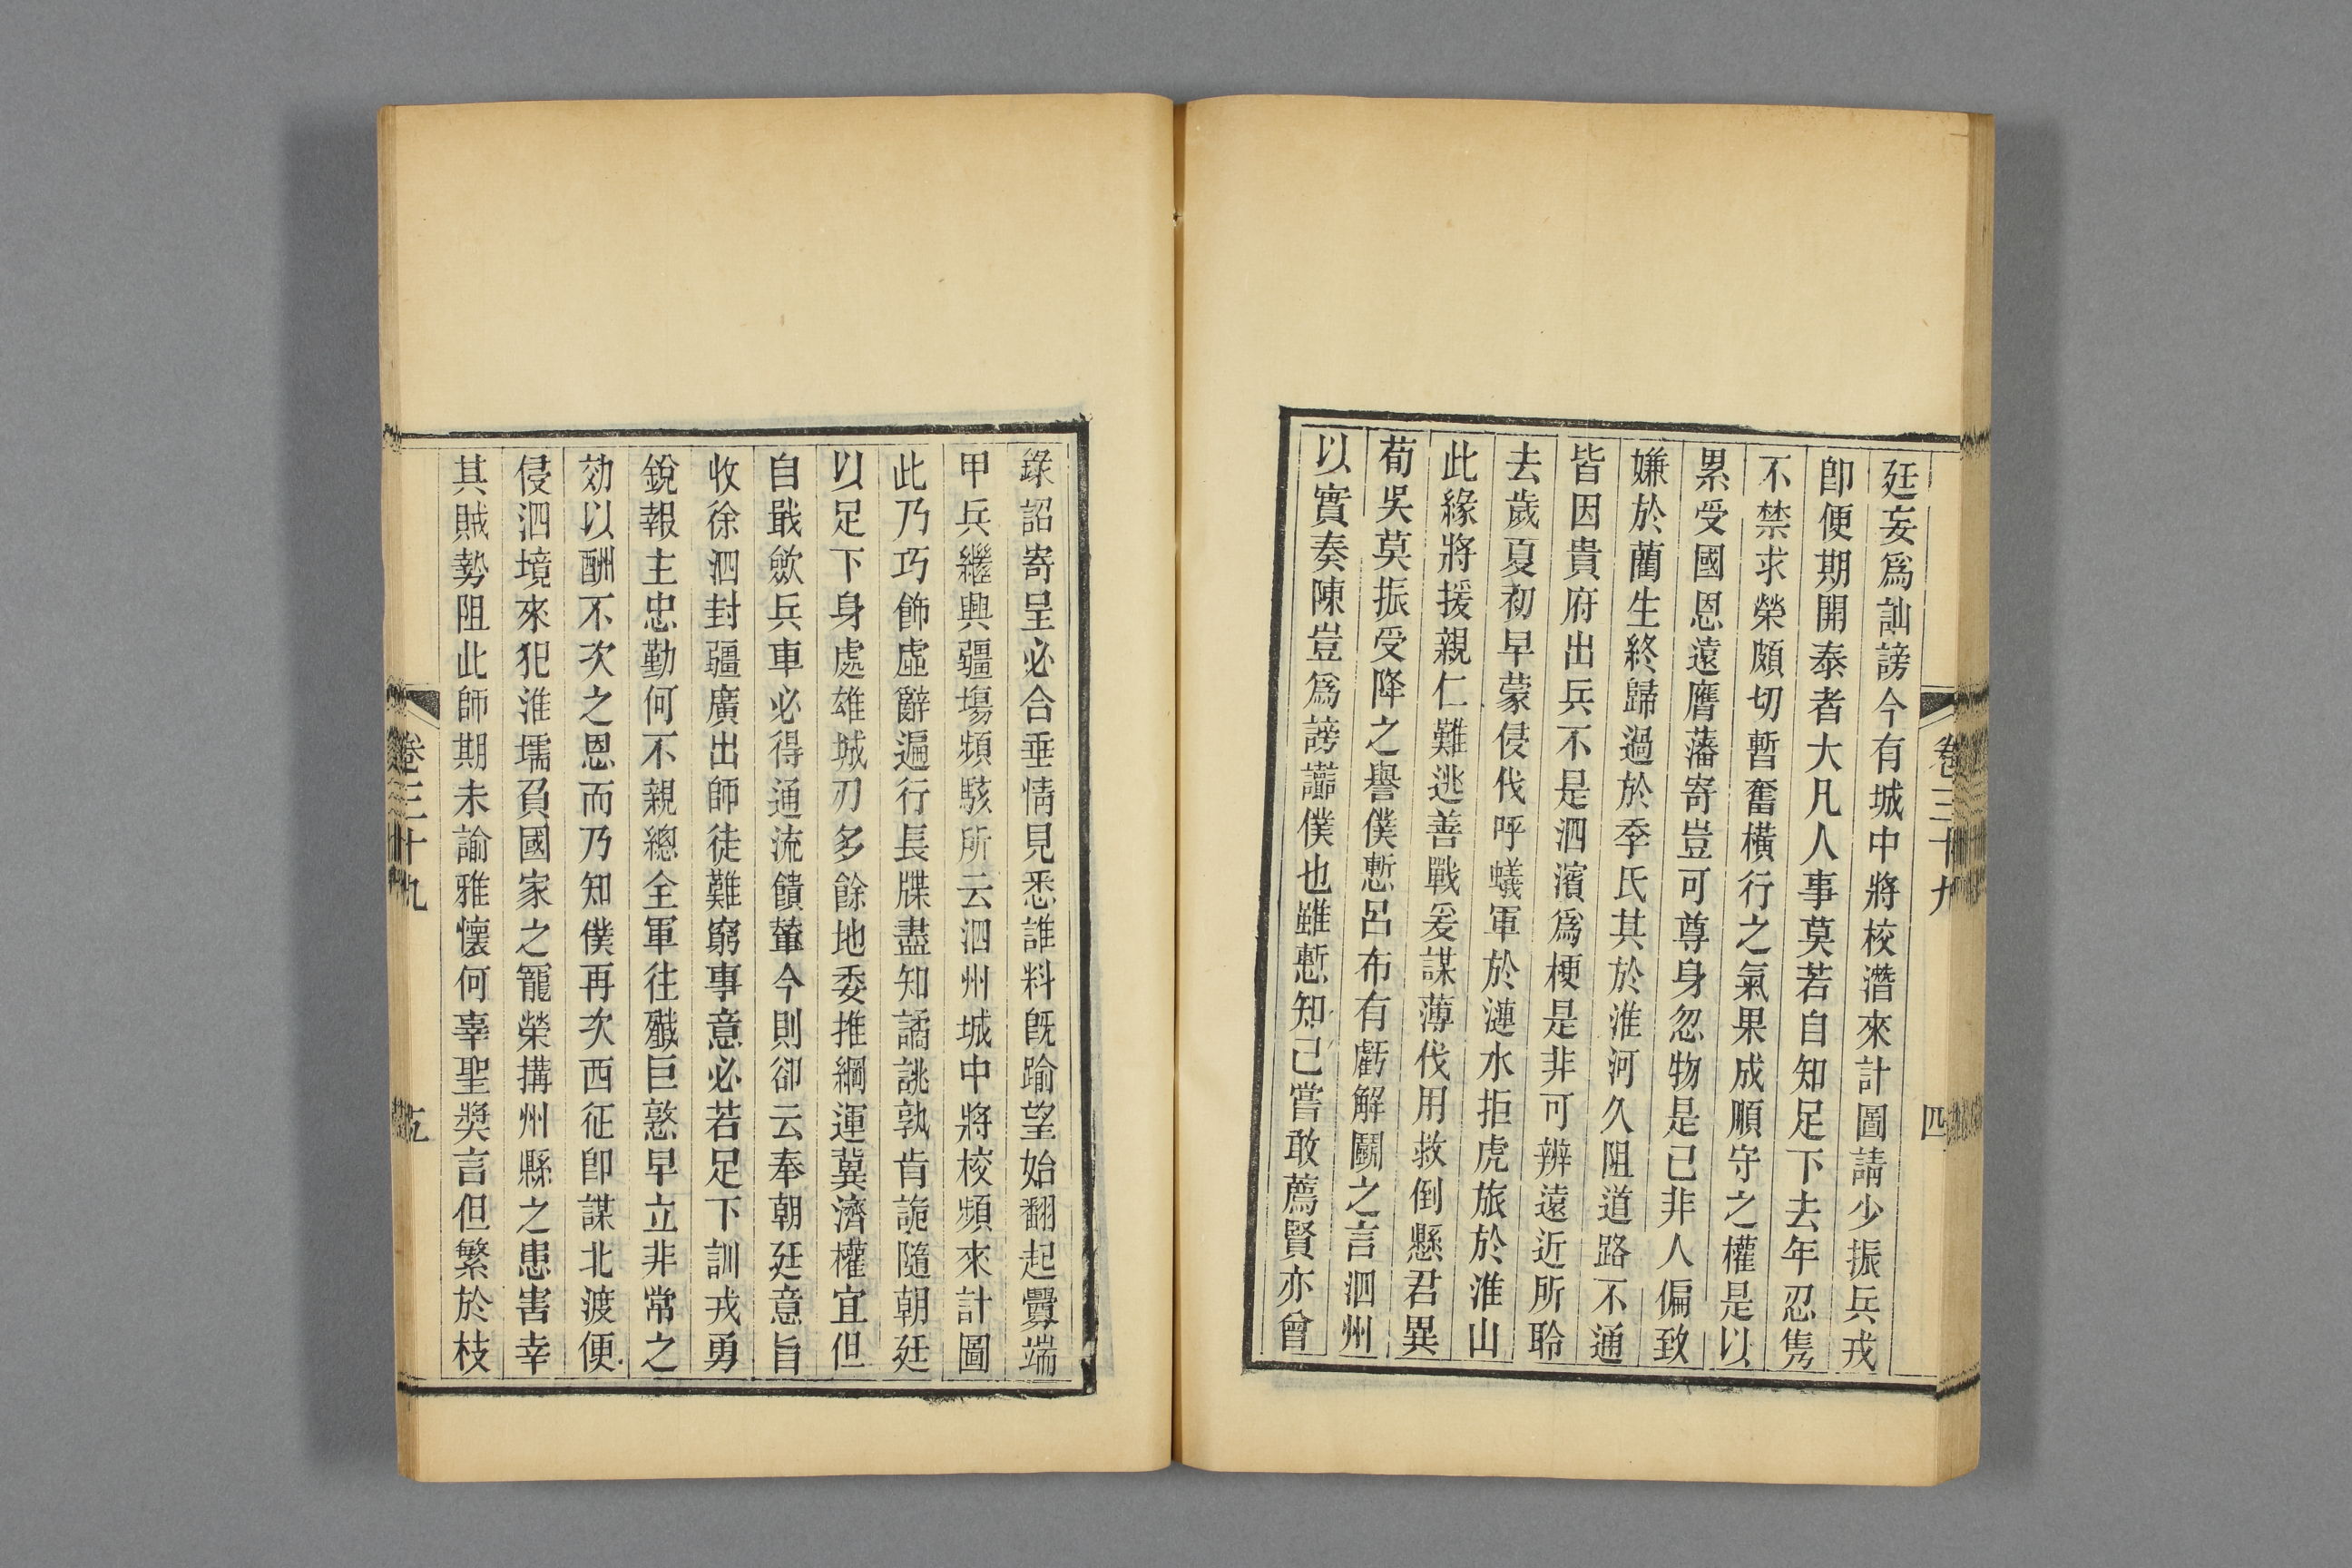 卷三十九
四
廷妄爲訕謗今有城中將校潛來計圖請少振兵戎
卽便期開泰者大凡人事莫若自知足下去年忍雋
不禁求榮頗切暫奮橫行之氣果成順守之權是以
累受國恩遠膺藩寄豈可尊身忽物是己非人偏致
嫌於藺生終歸過於季氏其於淮河久阻道路不通
皆因貴府出兵不是泗濱爲梗是非可辨遠近所聆
去歲夏初早蒙侵伐呼蟻軍於漣水拒虎旅於淮山
此緣將援親仁難逃善戰爰謀薄伐用救倒懸君異
荀吳莫振受降之譽僕慙呂布有虧解鬭之言泗州
以實奏陳豈爲謗讟僕也雖慙知己嘗敢薦賢亦曾
錄詔寄呈必合垂情見悉誰料旣踰望始翻起釁端
甲兵繼興疆場頻駭所云泗州城中將校頻來計圖
此乃巧飾虛辭遍行長牒盡知譎誂孰肯詭隨朝廷
以足下身處雄城刃多餘地委推綱運冀濟權宜但
自戢歛兵車必得通流饋輦今則卻云奉朝廷意旨
收徐泗封疆廣出師徒難窮事意必若足下訓戎勇
銳報主忠勤何不親總全軍往殲巨憝早立非常之
効以酬不次之恩而乃知僕再次西征卽謀北渡便
侵泗境來犯淮壖負國家之寵榮搆州縣之患害幸
其賊勢阻此師期未諭雅懷何辜聖奬言但繁於枝
卷三十九
五